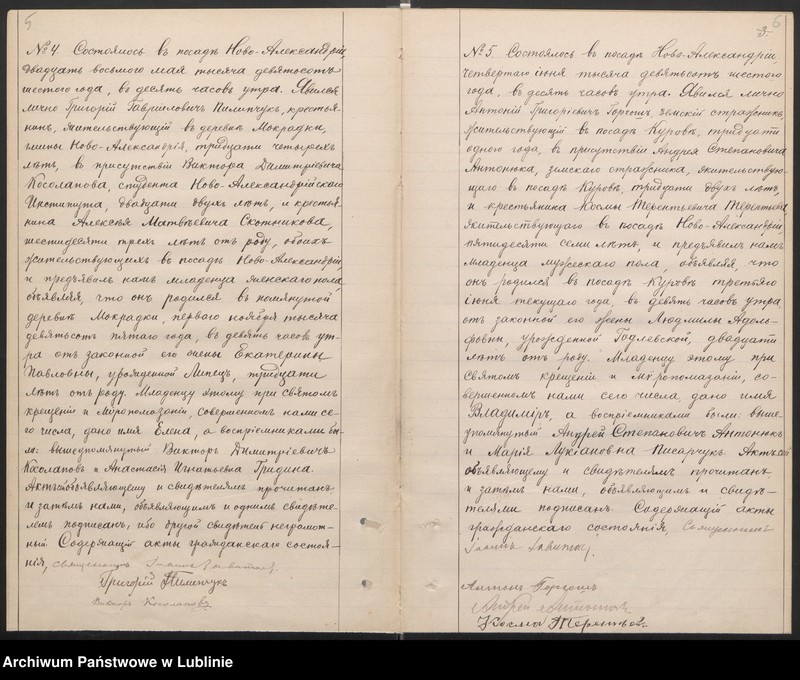 5
№ 4. Состоялось въ посадѣ Ново-Александріи,
двадцать восьмого мая тысяча девятьсотъ
шестого года, въ десять часовъ утра. Явился
лично Григорій Гавріиловичъ Пилипчукъ, крестья-
нинъ, жительствующій въ деревнѣ Мокрадки,
гмины Ново-Александрія, тридцати четырехъ
лѣтъ, въ присутствіи Виктора Димитріевича
Косолапова, студента Ново-Александрійскаго
Института, двадцати двухъ лѣтъ, и крестья-
нина Алексѣя Матвѣевича Скотникова,
шестидесяти трехъ лѣтъ отъ роду, обоихъ
жительствующихъ въ посадѣ Ново-Александріи,
и предъявилъ намъ младенца женскаго пола,
объявляя, что онъ родился въ помянутой
деревнѣ Мокрадки, перваго ноября тысяча
девятьсотъ пятаго года, въ девять часовъ ут-
ра отъ законной его жены Екатерины
Павловны, урожденной Липецъ, тридцати
лѣтъ отъ роду. Младенцу этому при святомъ
крещеніи и мѵропомазаніи, совершенномъ нами се-
го числа, дано имя Елена, а воспріемниками бы-
ли: вышеупомянутый Викторъ Димитріевичъ
Косолаповъ и Анастасія Игнатьевна Гридина.
Актъ сей объявляющему и свидѣтелямъ прочитанъ
и затѣмъ нами, объявляющимъ и однимъ свидѣте-
лемъ подписанъ, ибо другой свидѣтель неграмот-
ный. Содержащій акты гражданскаго состоя-
нія, Священникъ
Григорій Пилипчукъ
Викторъ Косолаповъ
6
3.
№ 5. Состоялось въ посадѣ Ново-Александріи,
четвертаго іюня тысяча девятьсотъ шестого
года, въ десять часовъ утра. Явился лично
Антоній Григоріевичъ Горгошъ, земскій стражникъ,
жительствующій въ посадѣ Куровѣ, тридцати
одного года, въ присутствіи Андрея Степановича
Антонюка, земскаго стражника, жительствую-
щаго въ посадѣ Куровѣ, тридцати двухъ лѣтъ,
и крестьянина Космы Терентьевича
жительствующаго въ посадѣ Ново-Александріи,
пятидесяти семи лѣтъ, и предъявилъ намъ
младенца мужескаго пола, объявляя, что
онъ родился въ посадѣ Куровѣ третьяго
іюня текущаго года, въ девять часовъ утра
отъ законной его жены Людмилы Адоль-
фовны, урожденной Годлевской, двадцати
лѣтъ отъ роду. Младенцу этому при
святомъ крещеніи и мѵропомазаніи, со-
вершенномъ нами сего числа, дано имя
Владиміръ, а воспріемниками были: выше-
упомянутый Андрей Степановичъ Антонюкъ
и Марія Лукіановна Писарчукъ. Актъ сей
объявляющему и свидѣтелямъ прочитанъ
и затѣмъ нами, объявляющимъ и свидѣ-
телями подписанъ. Содержащій акты
гражданскаго состоянія, Священникъ
Іоаннъ
Антонъ Горгошъ
Андрей Антонюкъ
Косма Терентьев
Archiwum Państwowe w Lublinie